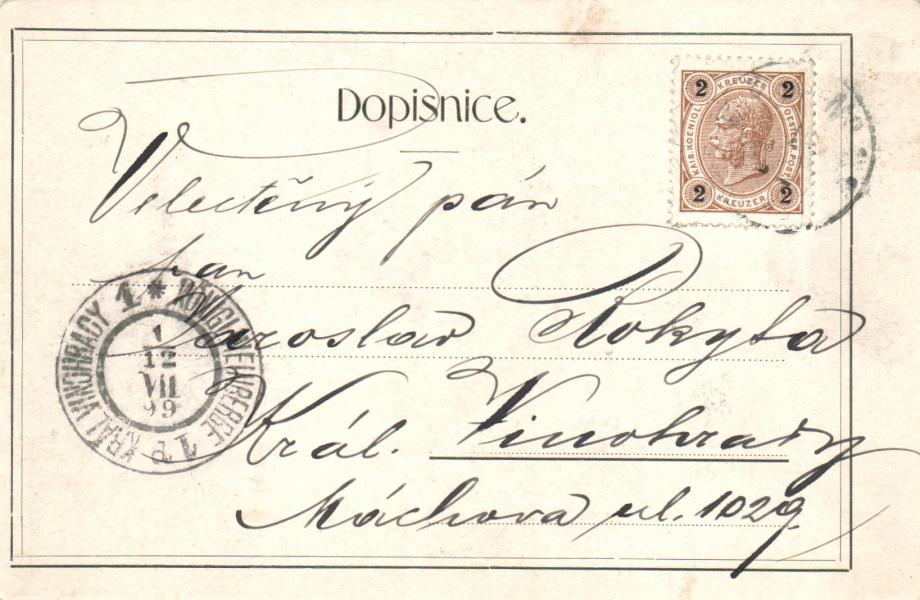 Dopisnice.
2 KREUZER 2
KAIS. KOENIGL. OESTERR. POST
2 KREUZER 2
Velectěný pán
pan
Jaroslav Rokyta
Král. Vinohrady
Máchova ul. 1029
KRÁL. VINOHRADY 1 * KÖNIGL. WEINBERGE 1
1
12
VII
99